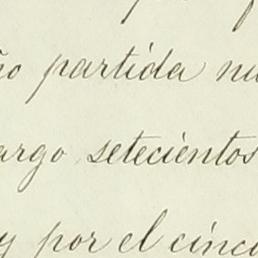 partida
argo setecientos
y por el cinco